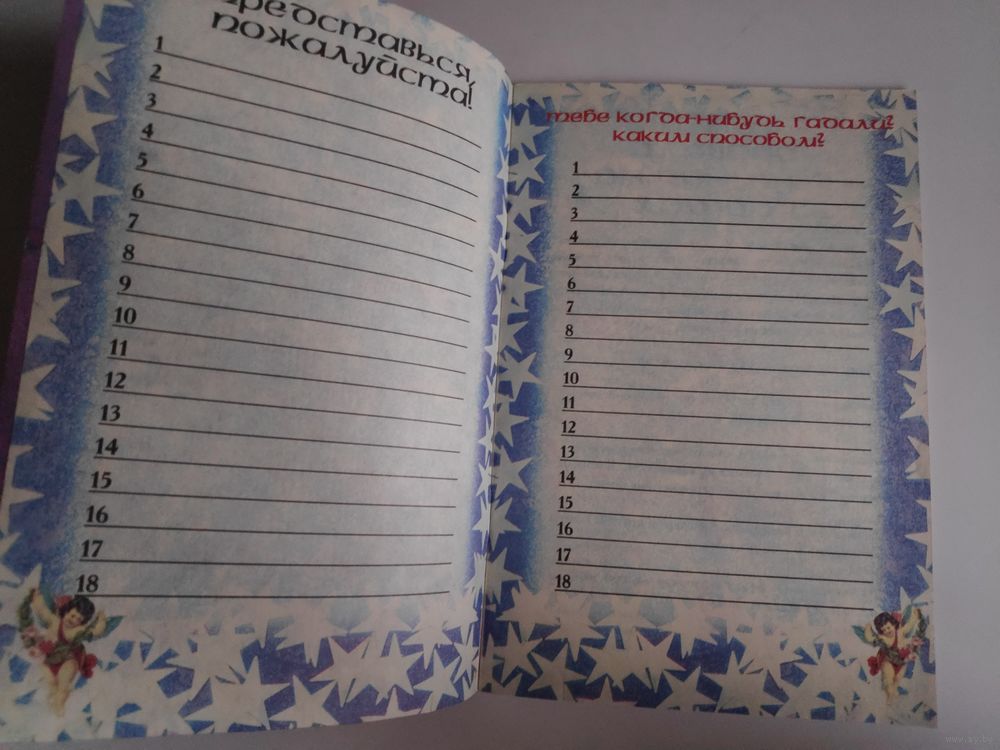 Представься,
пожалуйста!
1
2
3
4
5
6
7
8
9
10
11
12
13
14
15
16
17
18
Тебе когда-нибудь гадали?
Каким способом?
1
2
3
4
5
6
7
8
9
10
11
12
13
14
15
16
17
18